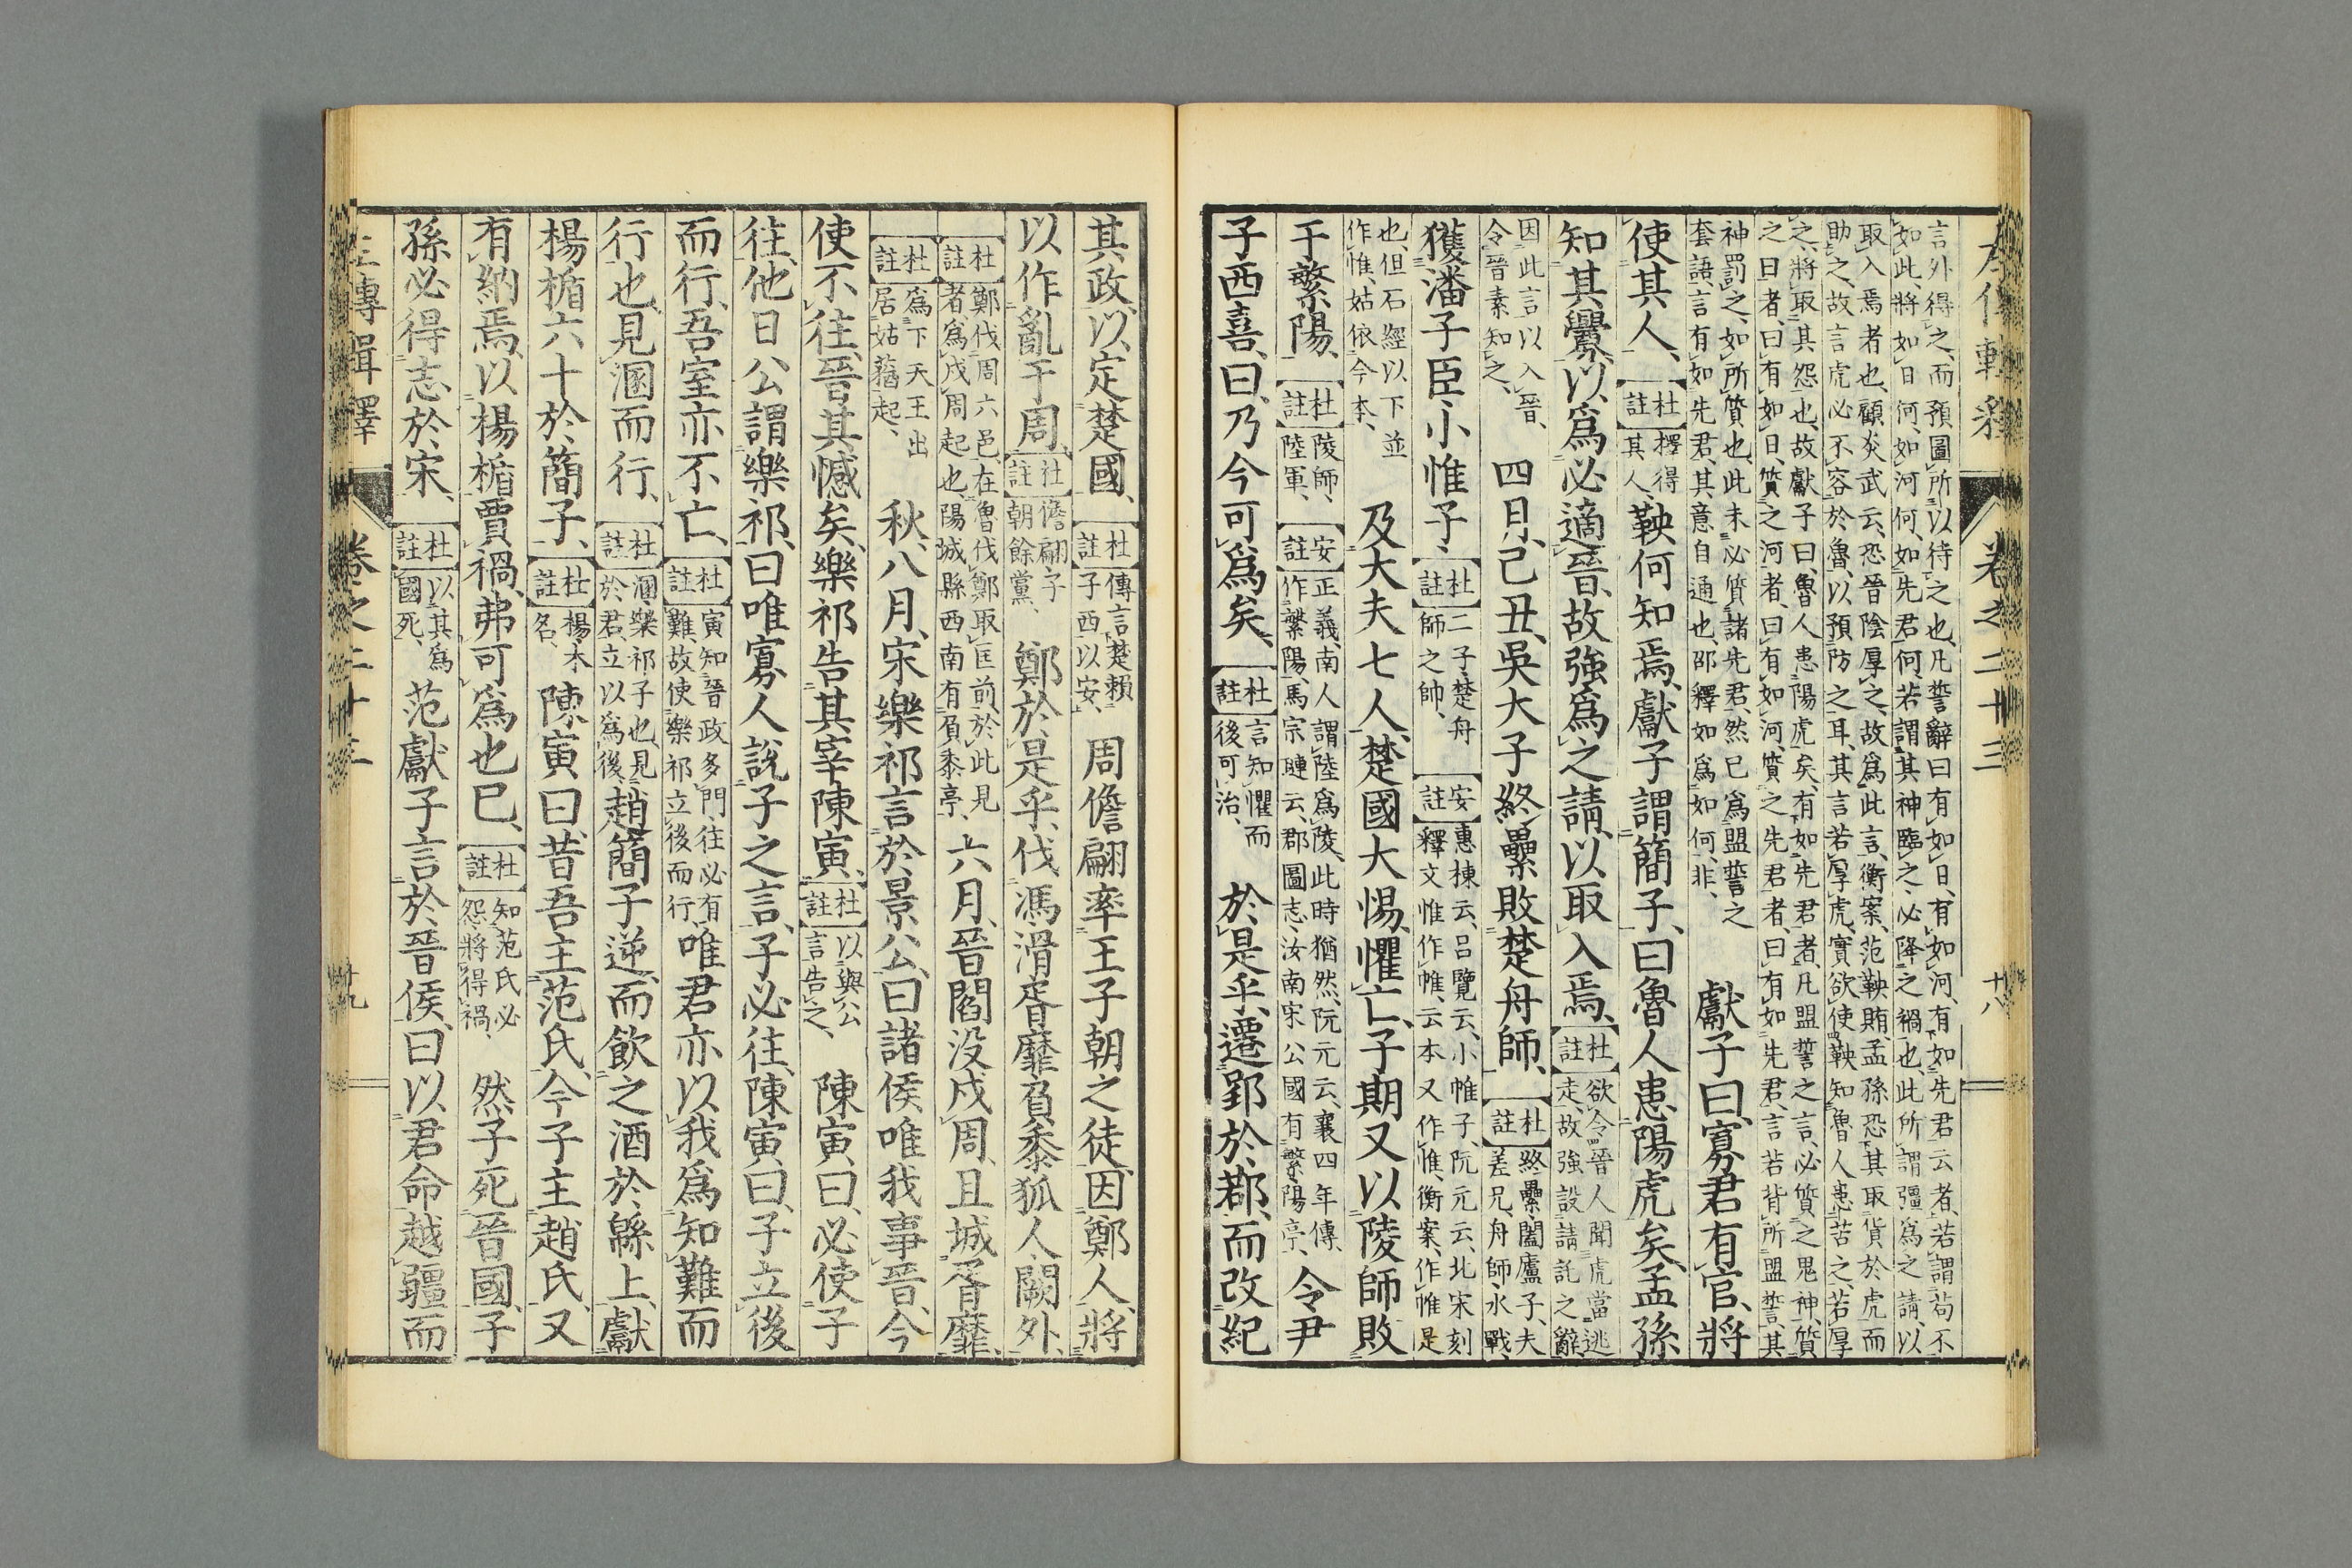 左傳輯釋 卷之二十三 十八
言外得之、而預圖所以待之也、凡誓辭曰有如日、有如河、有如先君云者、若謂苟不
如此、將如日何、如河何、如先君何、若謂其神臨之、必降之禍也、此所謂彊爲之請、以
取入焉者也、顧炎武云、恐晉陰厚之、故爲此言、衡案、范鞅賄、孟孫恐其取貨於虎而
助之、故言虎必不容於魯、以預防之耳、其言若厚虎、實欲使鞅知魯人患苦之、若厚
之、將取其怨也、故獻子曰、魯人患陽虎矣、有如先君者、凡盟誓之言、必質之鬼神、質
之日者、曰有如日、質之河者、曰有如河、質之先君者、曰有如先君、言若背所盟誓、其
神罰之、如所質也、此未必質諸先君、然已爲盟誓之
套語、言有如先君、其意自通也、邵釋如爲如何、非、
獻子曰、寡君有官、將
使其人、
杜註 擇得
其人、
鞅何知焉、獻子謂簡子、曰魯人患陽虎矣、孟孫
知其釁、以爲必適晉、故強爲之請、以取入焉、
杜註 欲令晉人聞虎當逃
走、故強設請託之辭、
因此言以入晉、
令晉素知之、
四月、己丑、吳大子終纍敗楚舟師、
杜註 終纍、闔廬子、夫
差兄、舟師、水戰、
獲潘子臣、小惟子、
杜註 二子、楚舟
師之帥、
安註 惠棟云、呂覽云、小帷子、阮元云、北宋刻
釋文惟作帷、云本又作惟、衡案、作帷是
也、但石經以下並
作惟、姑依今本、
及大夫七人、楚國大惕、懼亡、子期又以陵師敗
于繁陽、
杜註 陵師、
陸軍、
安註 正義、南人謂陸爲陵、此時猶然、阮元云、襄四年傳、
作繁陽、馬宗璉云、郡圖志、汝南宋公國有繁陽亭、
令尹
子西喜、曰、乃今可爲矣、
杜註 言知懼而
後可治、
於是乎遷郢於鄀、而改紀
其政、以定楚國、
杜註 傳言楚賴
子西以安、
周儋翩率王子朝之徒、因鄭人、將
以作亂于周、
杜註 儋翩子
朝餘黨、
鄭於是乎、伐馮滑胥靡負黍狐人闕外、
杜註 鄭伐周六邑、在魯伐鄭取匡前、於此見
者、爲戍周起也、陽城縣西南有負黍亭、
六月、晉閻没戍周、且城胥靡、
杜註 爲下天王出
居姑蕕起、
秋、八月、宋樂祁言於景公、曰諸侯、唯我事晉、今
使不往、晉其憾矣、樂祁告其宰陳寅、
杜註 以與公
言告之、
陳寅、曰、必使子
往、他日公謂樂祁、曰唯寡人說子之言、子必往、陳寅、曰、子立後
而行、吾室亦不亡、
杜註 寅知晉政多門、往必有
難、故使樂祁立後而行、
唯君亦以我爲知難而
行也、見溷而行、
杜註 溷、樂祁子也、見
於君、立以爲後、
趙簡子逆、而飲之酒於緜上、獻
楊楯六十於簡子、
杜註 楊、木
名、
陳寅曰、昔吾主范氏、今子主趙氏、又
有納焉、以楊楯賈禍、弗可爲也已、
杜註 知范氏必
怨、將得禍、
然子死晉國、子
孫必得志於宋、
杜註 以其爲
國死、
范獻子言於晉侯、曰、以君命越疆而
左傳輯釋 卷之二十三 十九